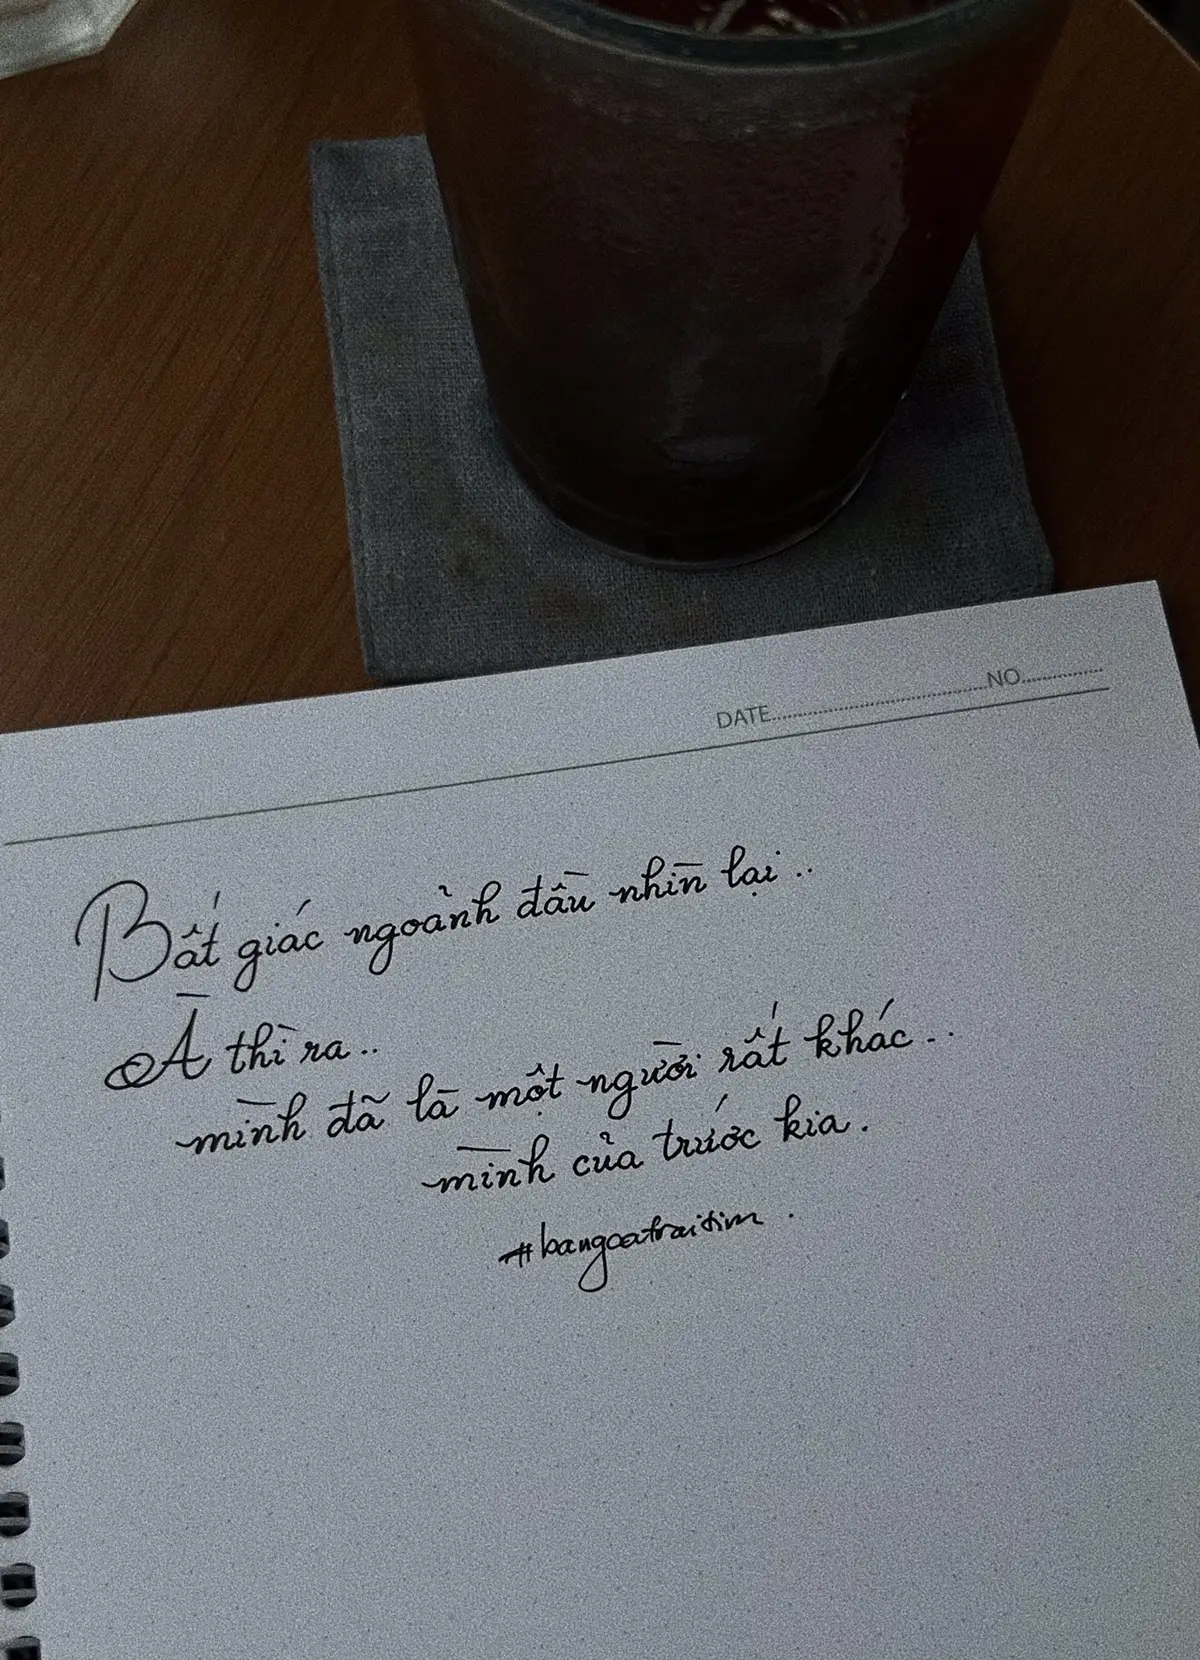 DATE NO
Bất giác ngoảnh đầu nhìn lại..
À thì ra..
mình đã là một người rất khác...
mình của trước kia.
#bangoatraitim.